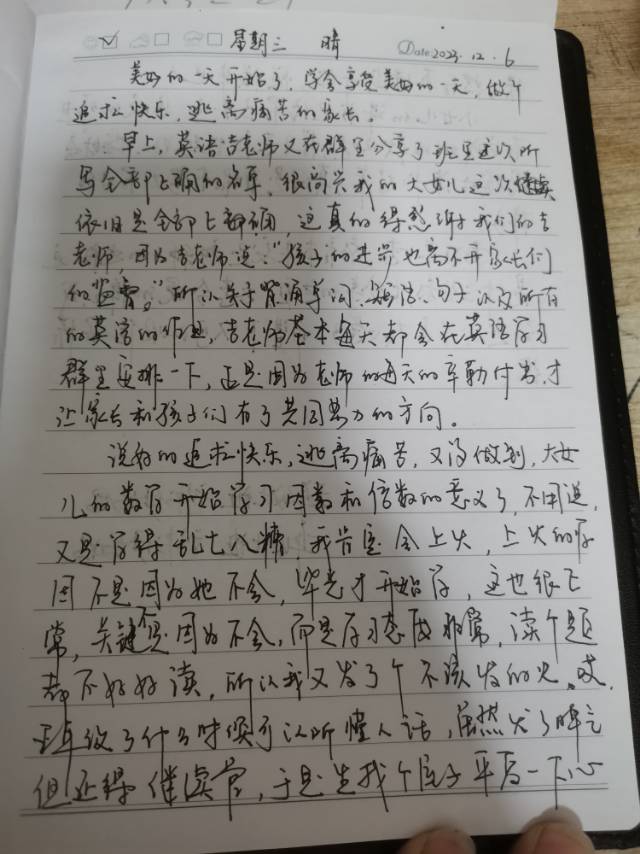 星期三 晴 Date 2023.12.6
美好的一天开始了，学会享受美好的一天，做个
追求快乐，逃离痛苦的家长。
早上，英语吉老师又在群里分享了班里这次听
写全部正确的名单，很高兴我的大女儿这次继续
依旧是全部正确，这真的得感谢我们的吉
老师，因为吉老师说："孩子的进步也离不开家长们
的"。所以关于背诵单词、语法、句子以及所有
的英语的作业，吉老师基本每天都会在英语学习
群里安排一下，正是因为老师的每天的辛勤付出，才
让家长和孩子们有了共同努力的方向。
说好的追求快乐，逃离痛苦，又没做到，大女
儿的数学开始学习因数和倍数的意义了，不用说，
又是学得乱七八糟，我肯定会上火，上火的原
因不是因为她不会，毕竟才开始学，这也很正
常，关键不是因为不会，而是学习态度非常，读个题
都不好好读，所以我又发了个不该发的火。哎，
年级了什么时候可以听懂人话，虽然火了
但还得继续管，于是先找个屋子平复一下心